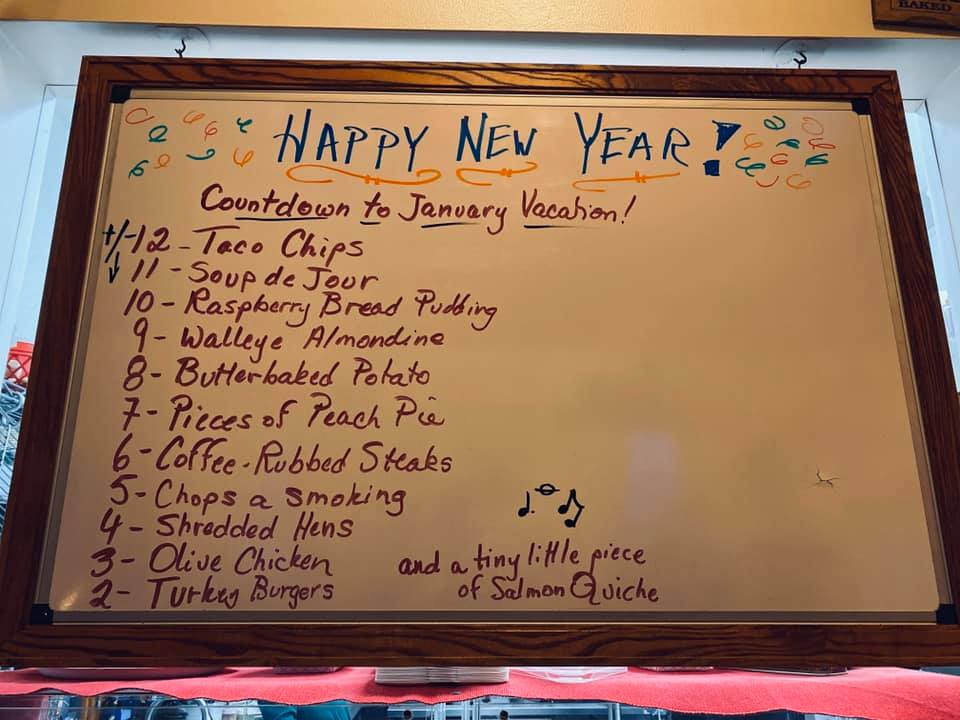 BAKED
HAPPY NEW YEAR!
Countdown to January Vacation!
+/- 12 - Taco Chips
11 - Soup de Jour
10 - Raspberry Bread Pudding
9 - Walleye Almondine
8 - Butterbaked Potato
7 - Pieces of Peach Pie
6 - Coffee-Rubbed Steaks
5 - Chops a smoking
4 - Shredded Hens
3 - Olive Chicken
2 - Turkey Burgers
and a tiny little piece
of Salmon Quiche